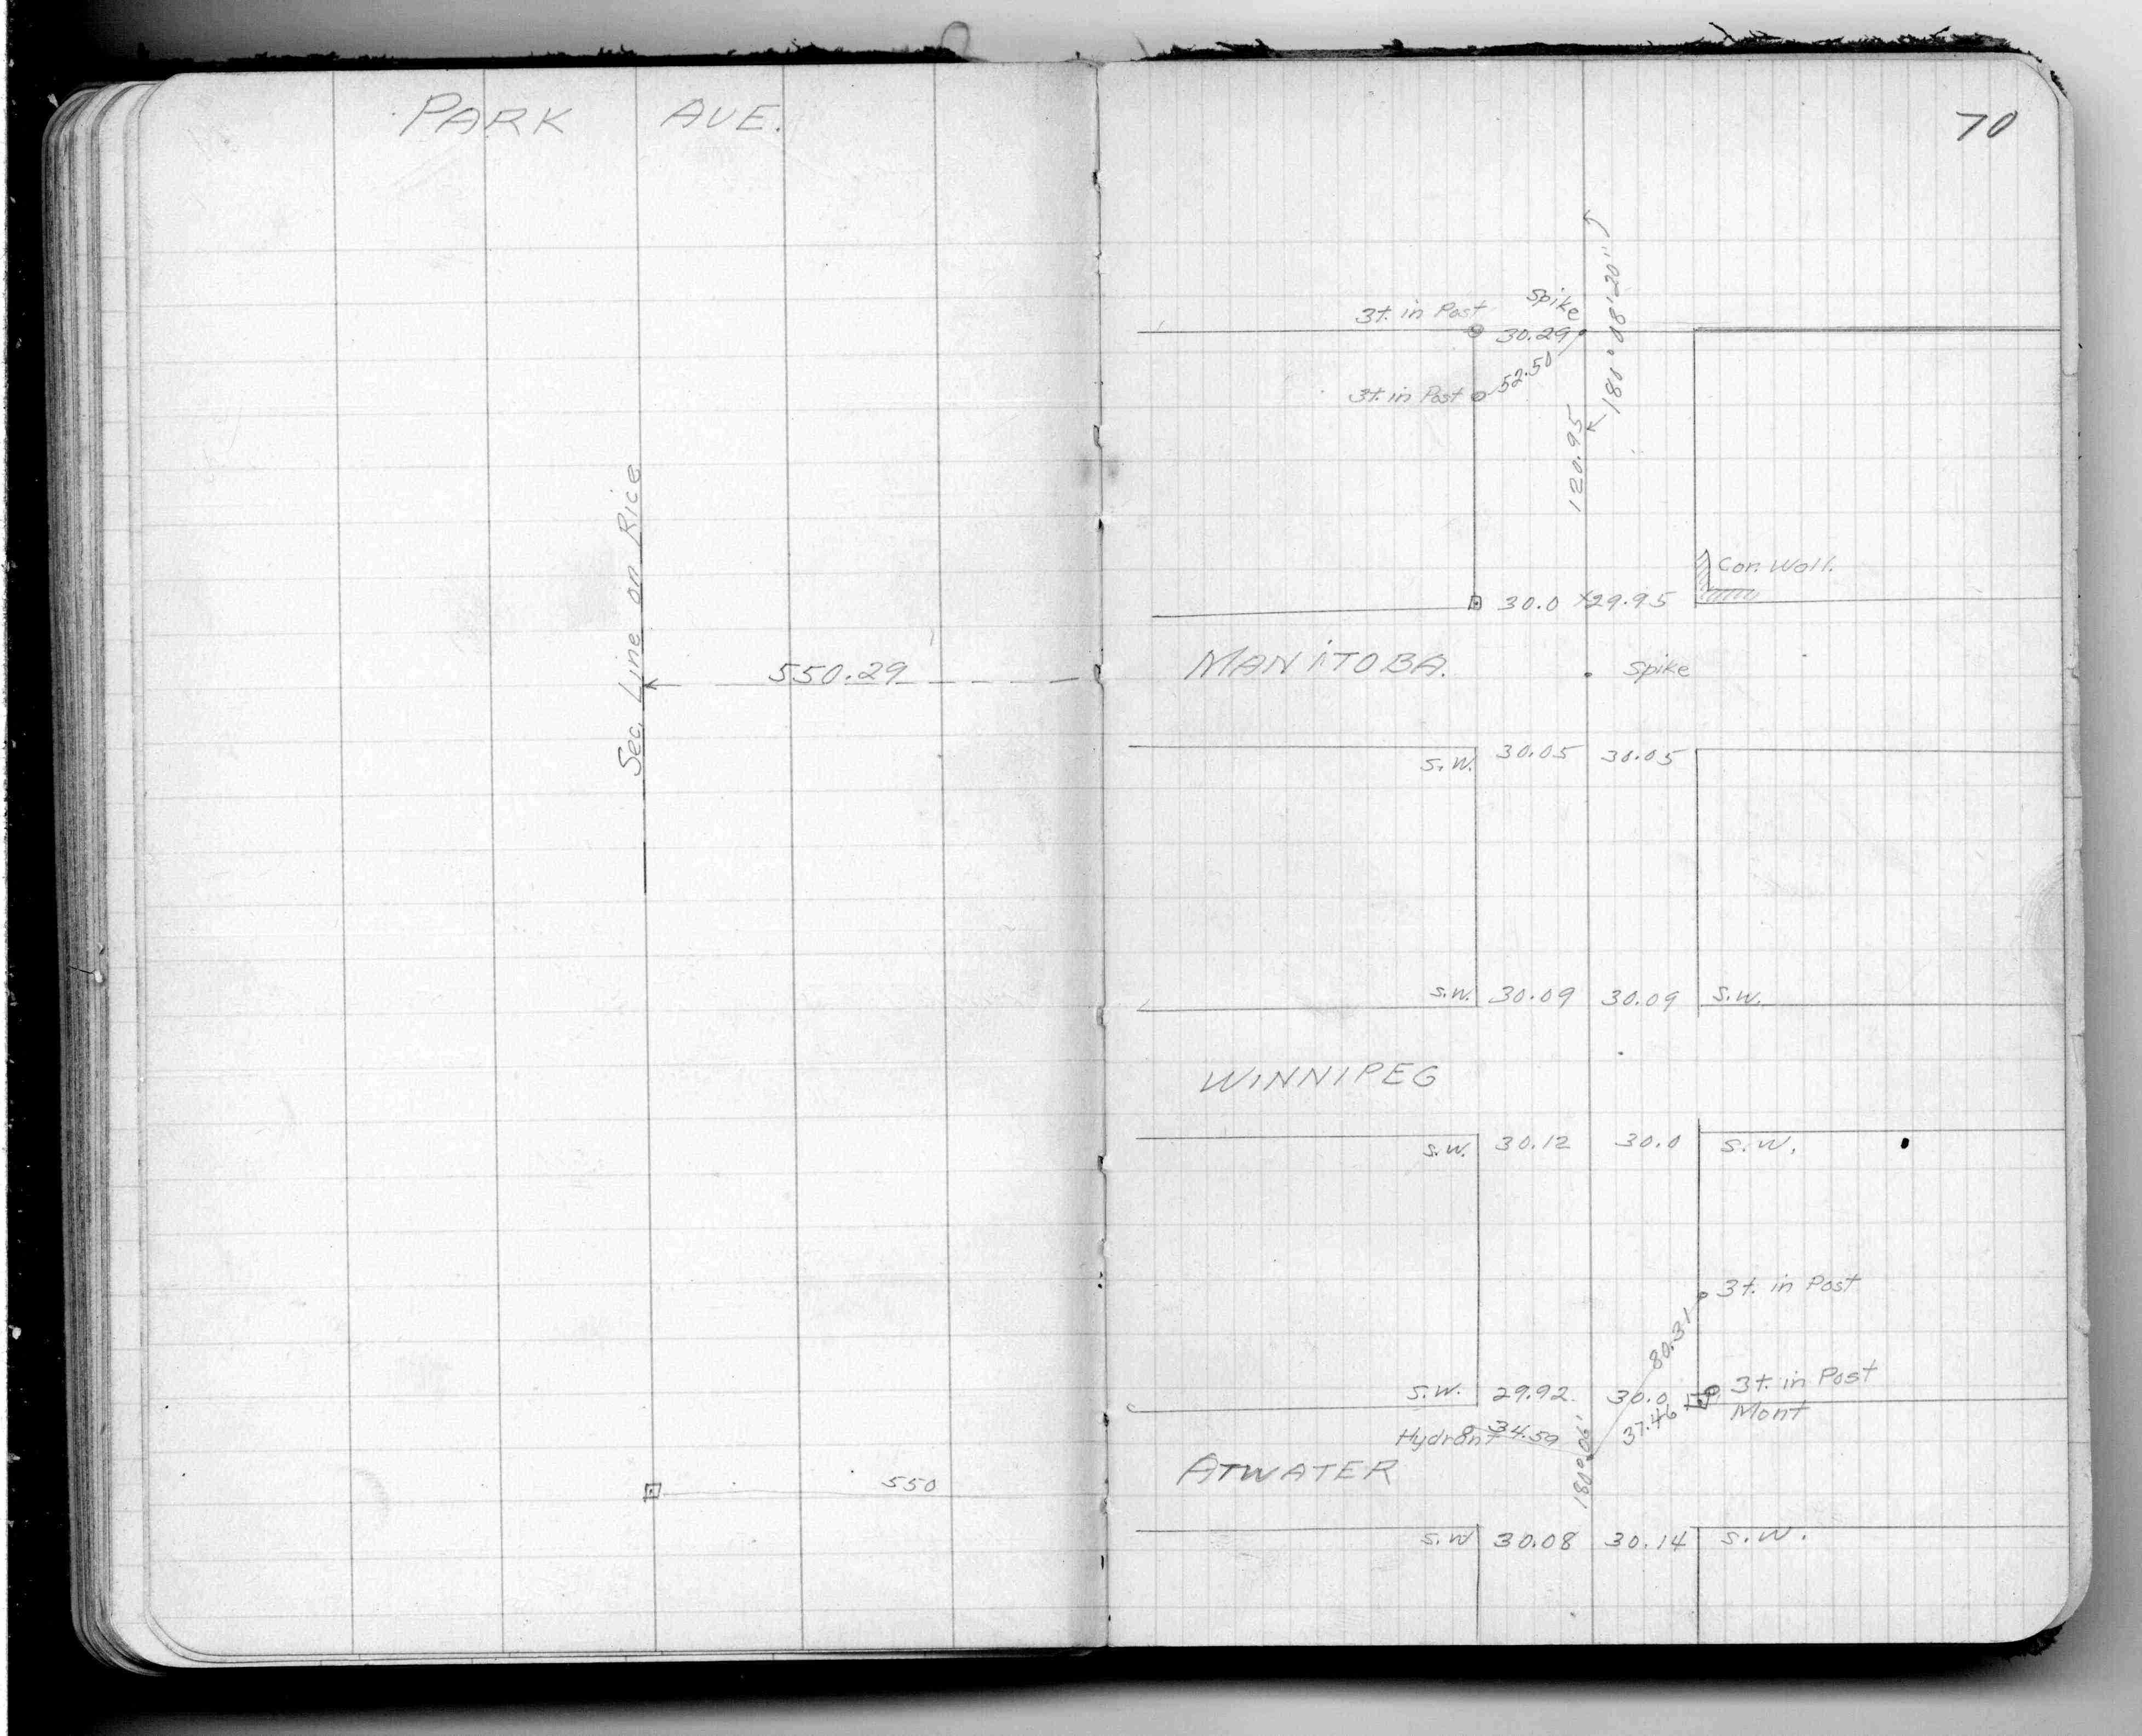 PARK AVE.
Sec. Line on Rice
550.29
550
70
3t. in Post
Spike
30.29
180°08'20"
3t. in Post
52.50
120.95
Cor. Wall.
30.0 x29.95
MANITOBA.
Spike
S.W. 30.05 30.05
S.W. 30.09 30.09 S.W.
WINNIPEG
S.W. 30.12 30.0 S.W.
3t. in Post
80.31
S.W. 29.92 30.0 3t. in Post
Mont
37.46
Hydrant 34.59
180°06'
ATWATER
S.W 30.08 30.14 S.W.